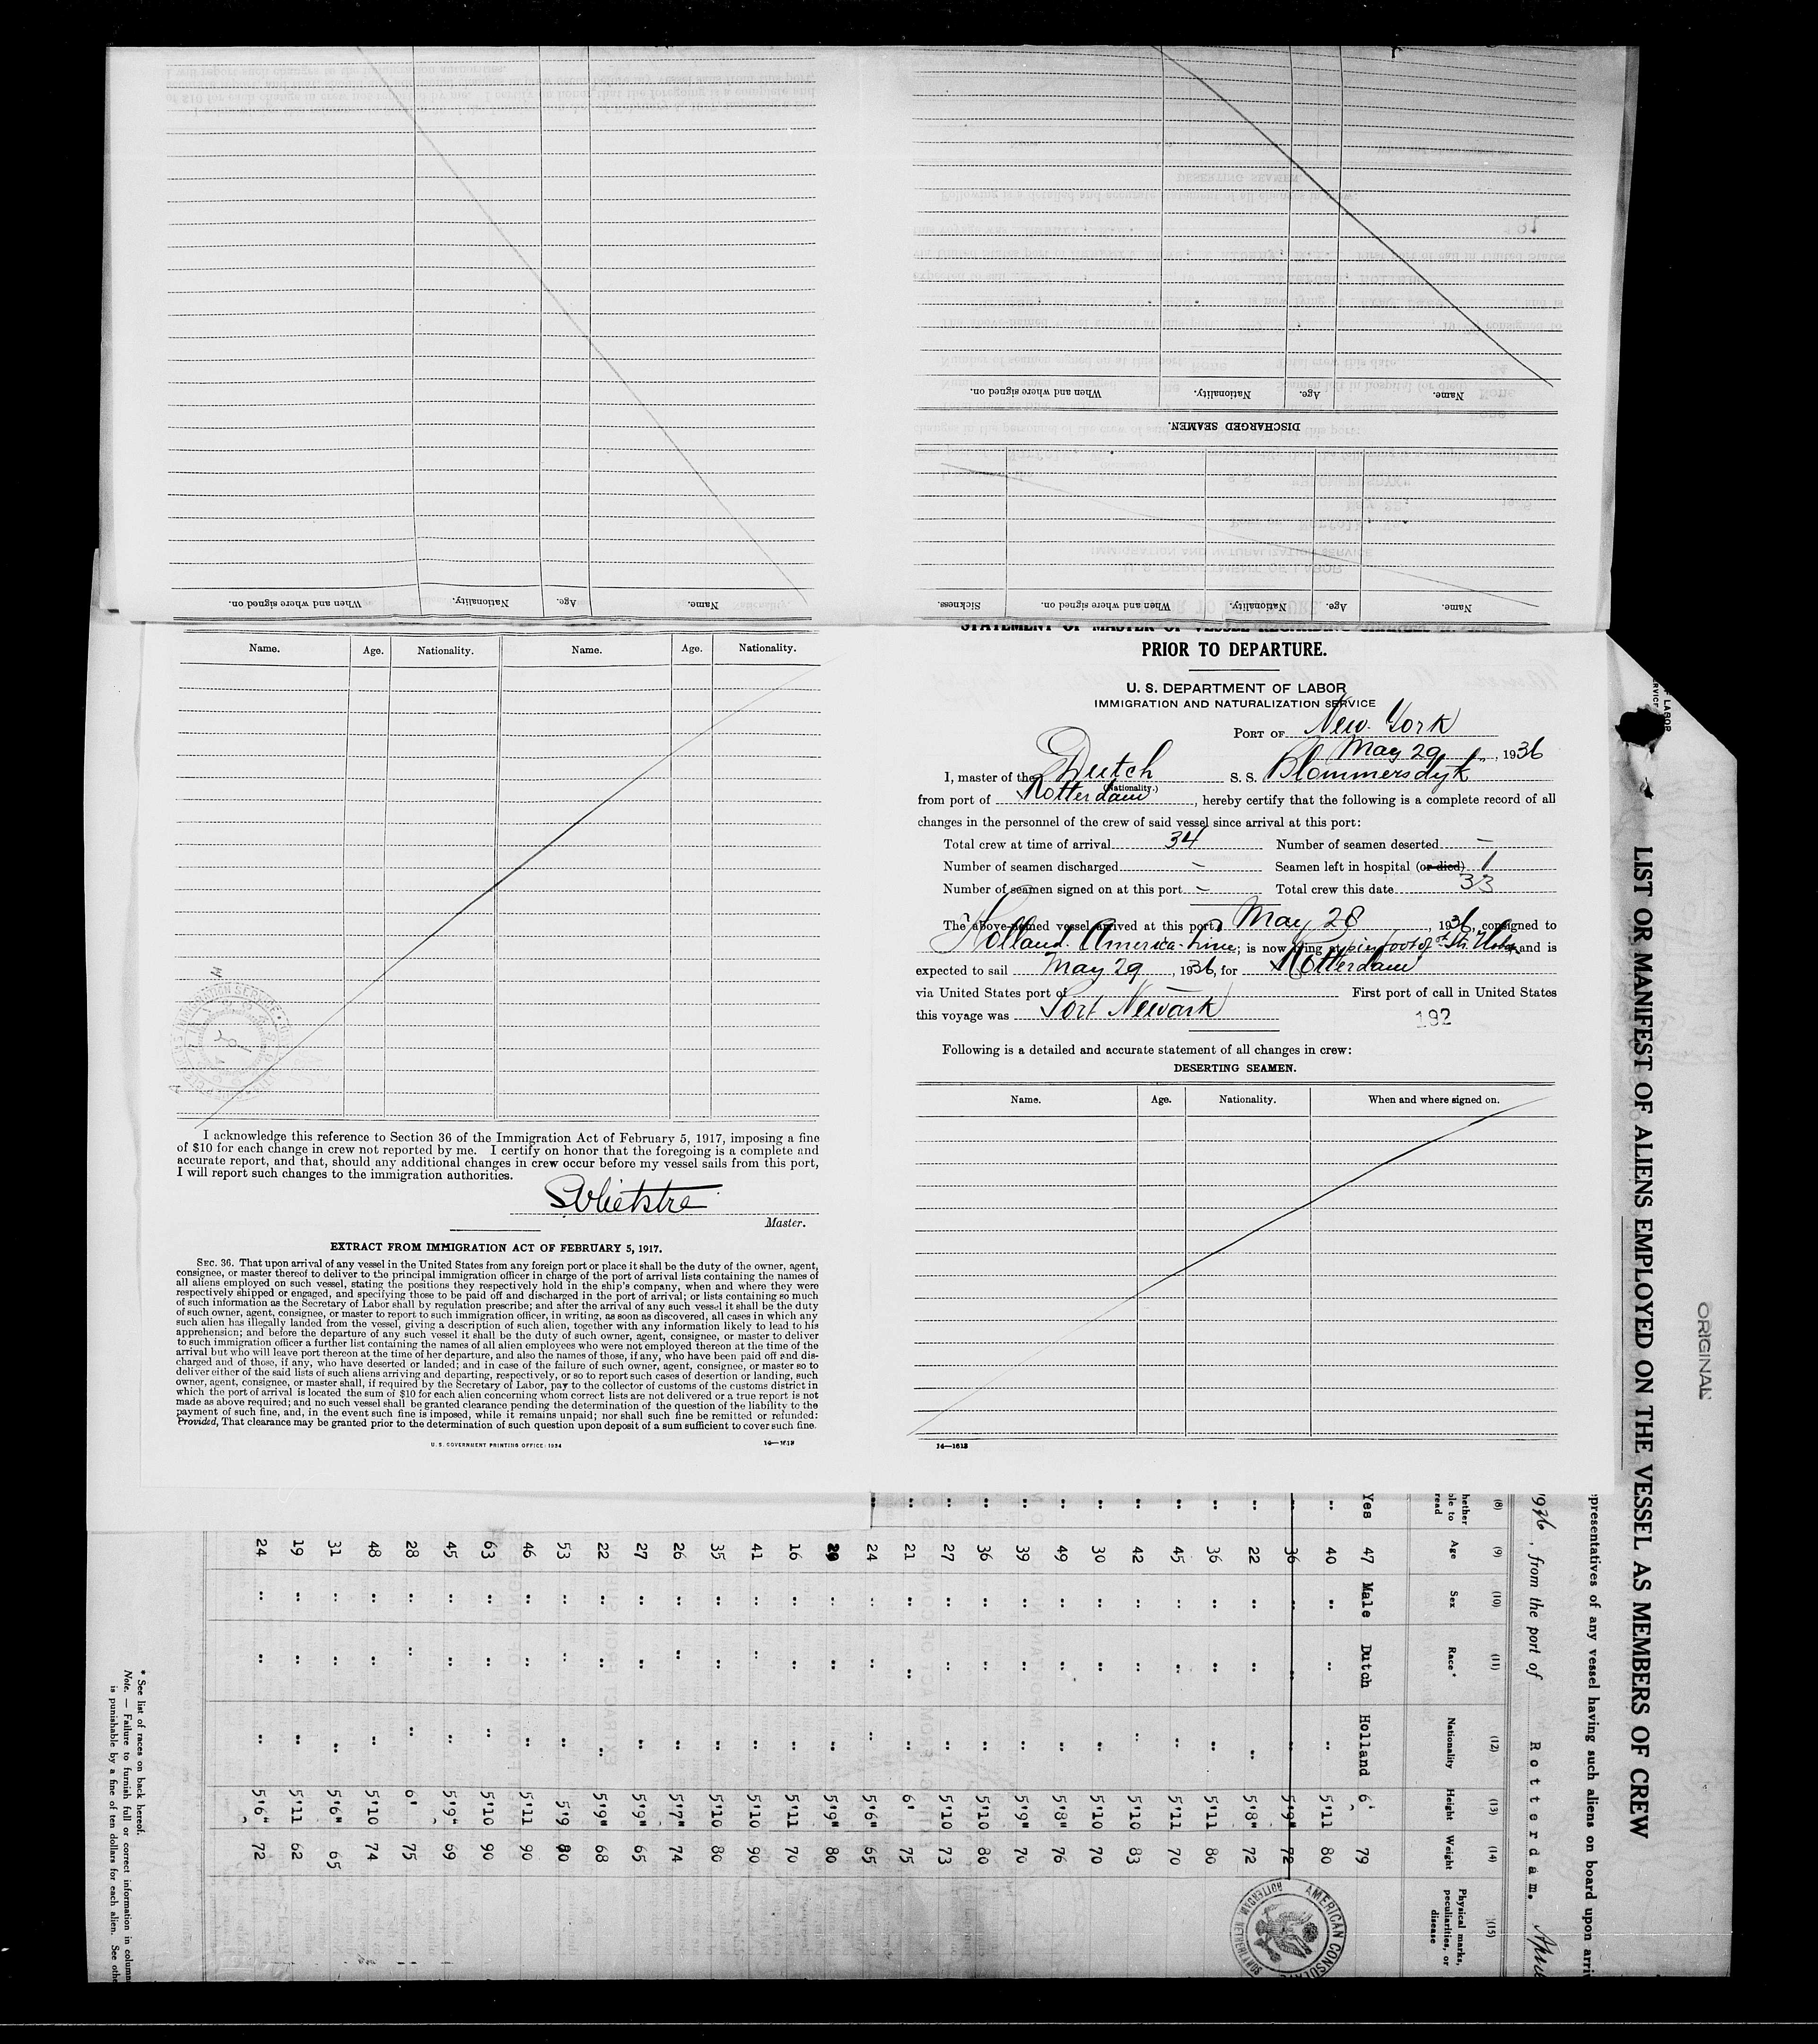 When and where signed on.
Nationality.
Age.
Name.
DISCHARGED SEAMEN.
When and where signed on.
Nationality.
Age.
Name.
Sickness.
When and where signed on.
Nationality.
Age.
Name.
Name. Age. Nationality. Name. Age. Nationality.
I acknowledge this reference to Section 36 of the Immigration Act of February 5, 1917, imposing a fine
of $10 for each change in crew not reported by me. I certify on honor that the foregoing is a complete and
accurate report, and that, should any additional changes in crew occur before my vessel sails from this port,
I will report such changes to the immigration authorities.
Master.
EXTRACT FROM IMMIGRATION ACT OF FEBRUARY 5, 1917.
SEC. 36. That upon arrival of any vessel in the United States from any foreign port or place it shall be the duty of the owner, agent,
consignee, or master thereof to deliver to the principal immigration officer in charge of the port of arrival lists containing the names of
all aliens employed on such vessel, stating the positions they respectively hold in the ship's company, when and where they were
respectively shipped or engaged, and specifying those to be paid off and discharged in the port of arrival; or lists containing so much
of such information as the Secretary of Labor shall by regulation prescribe; and after the arrival of any such vessel it shall be the duty
of such owner, agent, consignee, or master to report to such immigration officer, in writing, as soon as discovered, all cases in which any
such alien has illegally landed from the vessel, giving a description of such alien, together with any information likely to lead to his
apprehension; and before the departure of any such vessel it shall be the duty of such owner, agent, consignee, or master to deliver
to such immigration officer a further list containing the names of all alien employees who were not employed thereon at the time of the
arrival but who will leave port thereon at the time of her departure, and also the names of those, if any, who have been paid off and dis-
charged and of those, if any, who have deserted or landed; and in case of the failure of such owner, agent, consignee, or master so to
deliver either of the said lists of such aliens arriving and departing, respectively, or so to report such cases of desertion or landing, such
owner, agent, consignee, or master shall, if required by the Secretary of Labor, pay to the collector of customs of the customs district in
which the port of arrival is located the sum of $10 for each alien concerning whom correct lists are not delivered or a true report is not
made as above required; and no such vessel shall be granted clearance pending the determination of the question of the liability to the
payment of such fine, and, in the event such fine is imposed, while it remains unpaid; nor shall such fine be remitted or refunded:
Provided, That clearance may be granted prior to the determination of such question upon deposit of a sum sufficient to cover such fine.
U.S. GOVERNMENT PRINTING OFFICE: 1934 14—1618
PRIOR TO DEPARTURE.
U. S. DEPARTMENT OF LABOR
IMMIGRATION AND NATURALIZATION SERVICE
PORT OF New York
May 29, 1936
I, master of the Dutch S. S. Blommersdyk
(Nationality.)
from port of Rotterdam, hereby certify that the following is a complete record of all
changes in the personnel of the crew of said vessel since arrival at this port:
Total crew at time of arrival 34 Number of seamen deserted –
Number of seamen discharged – Seamen left in hospital (or died) 1
Number of seamen signed on at this port – Total crew this date 33
The above-named vessel arrived at this port May 28, 1936, consigned to
Holland America Line; is now lying at pier foot of 5th St. Hob. and is
expected to sail May 29, 1936, for Rotterdam
via United States port of — First port of call in United States
this voyage was Port Newark
192
Following is a detailed and accurate statement of all changes in crew:
DESERTING SEAMEN.
Name. Age. Nationality. When and where signed on.
14—1618
LIST OR MANIFEST OF ALIENS EMPLOYED ON THE VESSEL AS MEMBERS OF CREW
ORIGINAL
representatives of any vessel having such aliens on board upon arri
1936, from the port of Rotterdam. April
(8) (9) (10) (11) (12) (13) (14) (15)
hether ble to read Age Sex Race* Nationality Height Weight Physical marks, peculiarities, or disease
Yes 47 Male Dutch Holland 6' 79
" 40 " " " 5'11 80
" 36 " " " 5'9" 72
" 22 " " " 5'8" 72
" 36 " " " 5'11 80
" 45 " " " 5'11 70
" 42 " " " 5'10 83
" 30 " " " 5'10 70
" 49 " " " 5'8" 76
" 39 " " " 5'9" 70
" 36 " " " 5'10 80
" 27 " " " 5'10 73
" 21 " " " 6' 75
" 24 " " " 5'6" 65
" " " 5'9" 80
16 " " " 5'11 70
41 " " " 5'10 90
35 " " " 5'10 80
26 " " " 5'7" 74
27 " " " 5'9" 65
22 " " " 5'9" 68
53 " " " 5'9 80
46 " " " 5'11 90
63 " " " 5'10 90
45 " " " 5'9" 69
28 " " " 6' 75
48 " " " 5'10 74
31 " " " 5'6" 65
19 " " " 5'11 62
24 " " " 5'6" 72
AMERICAN CONSULATE
ROTTERDAM NETHERLANDS
* See list of races on back hereof.
Note. — Failure to furnish full or correct information in column
is punishable by a fine of ten dollars for each alien. See othe